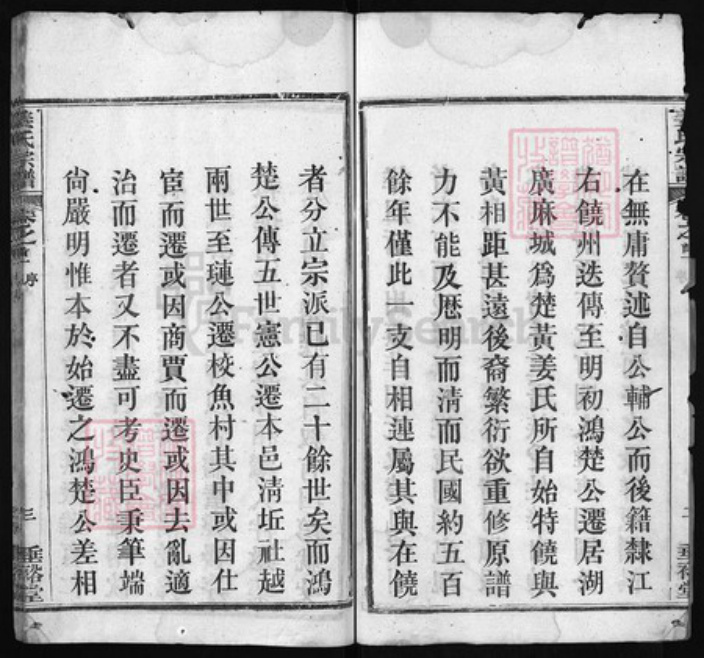 在無庸贅述自公輔公而後籍隸江
右饒州迭傳至明初鴻楚公遷居湖
廣麻城爲楚黃姜氏所自始特饒與
黃相距甚遠後裔繁衍欲重修原譜
力不能及歷明而淸而民國約五百
餘年僅此一支自相連屬其與在饒
者分立宗派已有二十餘世矣而鴻
楚公傳五世憲公遷本邑淸坵社越
兩世至璉公遷校魚村其中或因仕
宦而遷或因商賈而遷或因去亂適
治而遷者又不盡可考史臣秉筆端
尙嚴明惟本於始遷之鴻楚公差相
姜氏宗譜
卷之首
序
三
垂裕堂
FamilySearch